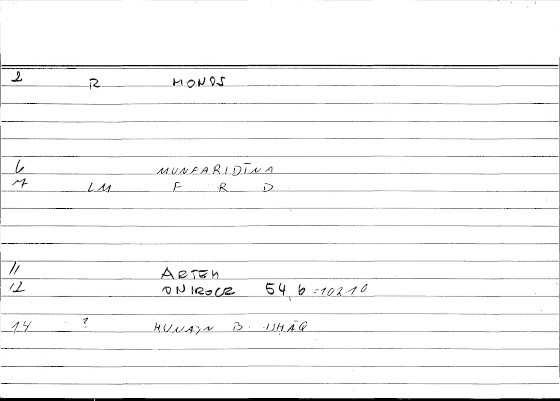 2 R MONOS
6 MUNFARIDĪNA
7 LM F R D
11 ARTEM
12 ONIROCR 54, 6 = 102 10
14 ? HUNAYN B. ISHĀQ